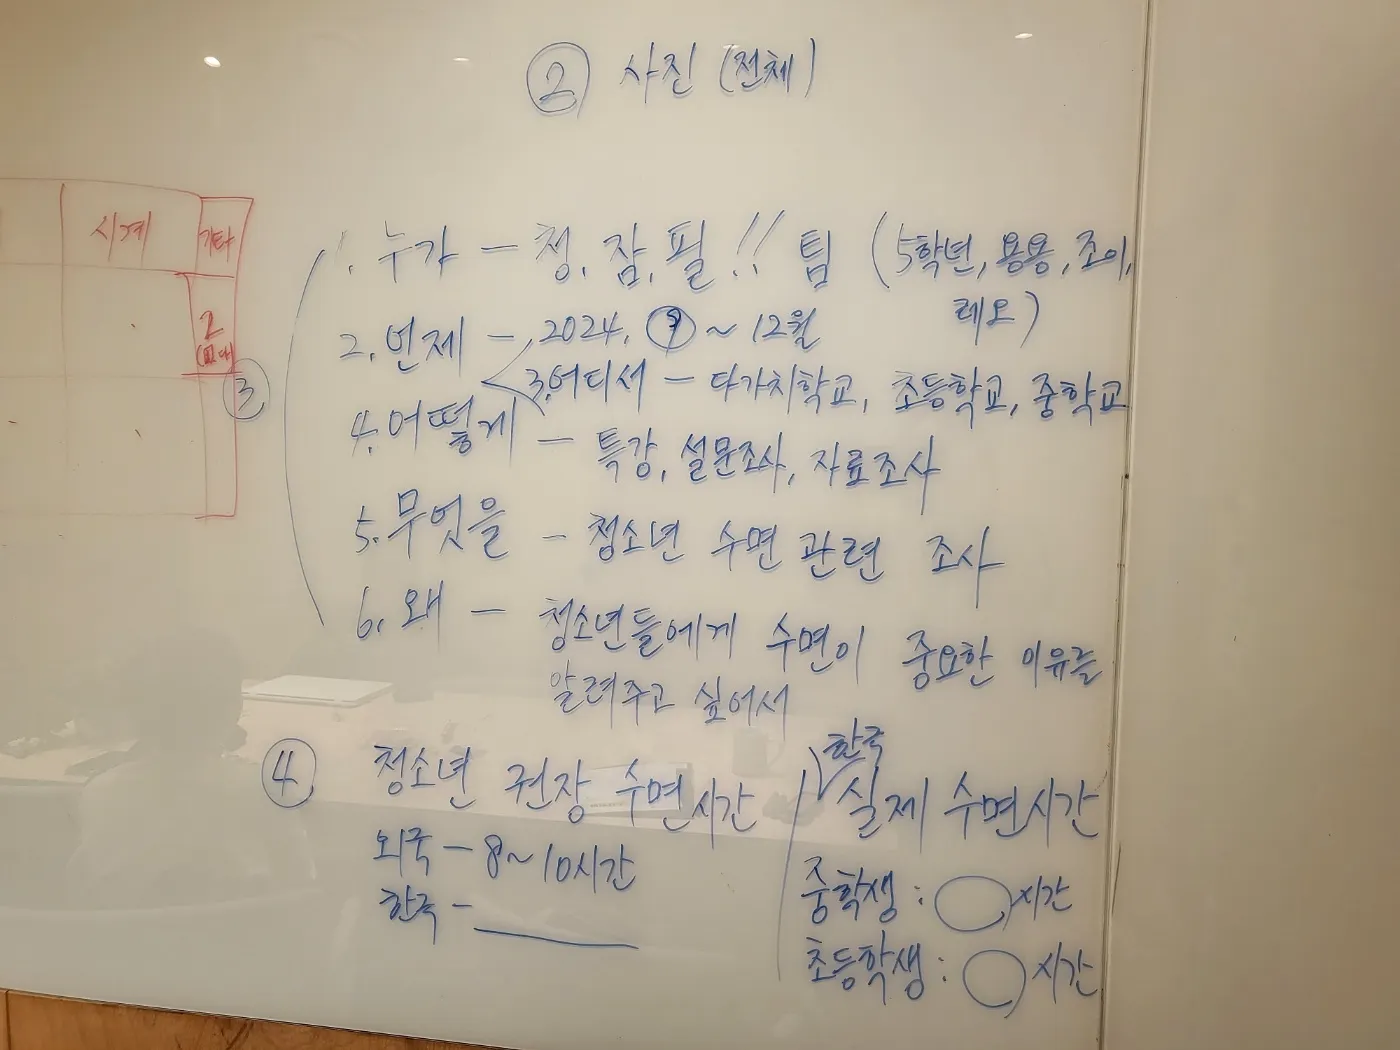 ② 사진 (전체)
시계 기타
2
③
1. 누가 - 청.잠.필!! 팀 (5학년, 용용, 조이,
레오)
2. 언제 - 2024. ~ 12월
3. 어디서 - 다가치학교, 초등학교, 중학교
4. 어떻게 - 특강, 설문조사, 자료조사
5. 무엇을 - 청소년 수면 관련 조사
6. 왜 - 청소년들에게 수면이 중요한 이유를
알려주고 싶어서
④ 청소년 권장 수면시간
외국 - 8~10시간
한국 - ______
한국
실제 수면시간
중학생 : ◯시간
초등학생 : ◯시간